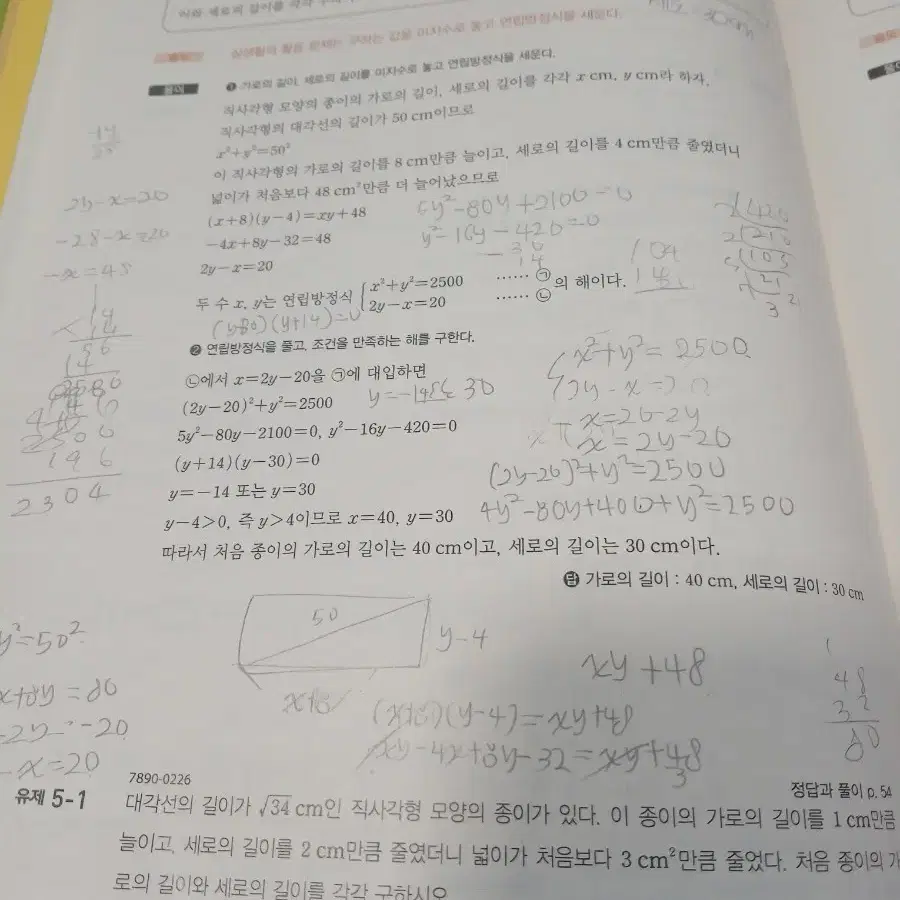 실생활의 활용 문제는 구하는 값을 미지수로 놓고 연립방정식을 세운다.
풀이
❶ 가로의 길이, 세로의 길이를 미지수로 놓고 연립방정식을 세운다.
직사각형 모양의 종이의 가로의 길이, 세로의 길이를 각각 x cm, y cm라 하자.
직사각형의 대각선의 길이가 50 cm이므로
x²+y²=50²
이 직사각형의 가로의 길이를 8 cm만큼 늘이고, 세로의 길이를 4 cm만큼 줄였더니
넓이가 처음보다 48 cm²만큼 더 늘어났으므로
(x+8)(y-4)=xy+48
-4x+8y-32=48
2y-x=20
두 수 x, y는 연립방정식 { x²+y²=2500 …… ㉠
2y-x=20 …… ㉡ 의 해이다.
❷ 연립방정식을 풀고, 조건을 만족하는 해를 구한다.
㉡에서 x=2y-20을 ㉠에 대입하면
(2y-20)²+y²=2500
5y²-80y-2100=0, y²-16y-420=0
(y+14)(y-30)=0
y=-14 또는 y=30
y-4>0, 즉 y>4이므로 x=40, y=30
따라서 처음 종이의 가로의 길이는 40 cm이고, 세로의 길이는 30 cm이다.
답 가로의 길이 : 40 cm, 세로의 길이 : 30 cm
2y-x=20
-28-x=20
-x=48
y²-16y-420=0
x²+y²=2500
x=20-2y
x=2y-20
(2y-20)²+y²=2500
4y²-80y+400+y²=2500
2500
196
2304
50
y-4
x+8
xy+48
(x+8)(y-4)=xy+48
xy-4x+8y-32=xy+48
48
32
80
y²=50²
x+8y=80
-2y=-20
-x=20
7890-0226
정답과 풀이 p. 54
유제 5-1 대각선의 길이가 √34 cm인 직사각형 모양의 종이가 있다. 이 종이의 가로의 길이를 1 cm만큼
늘이고, 세로의 길이를 2 cm만큼 줄였더니 넓이가 처음보다 3 cm²만큼 줄었다. 처음 종이의 가
로의 길이와 세로의 길이를 각각 구하시오